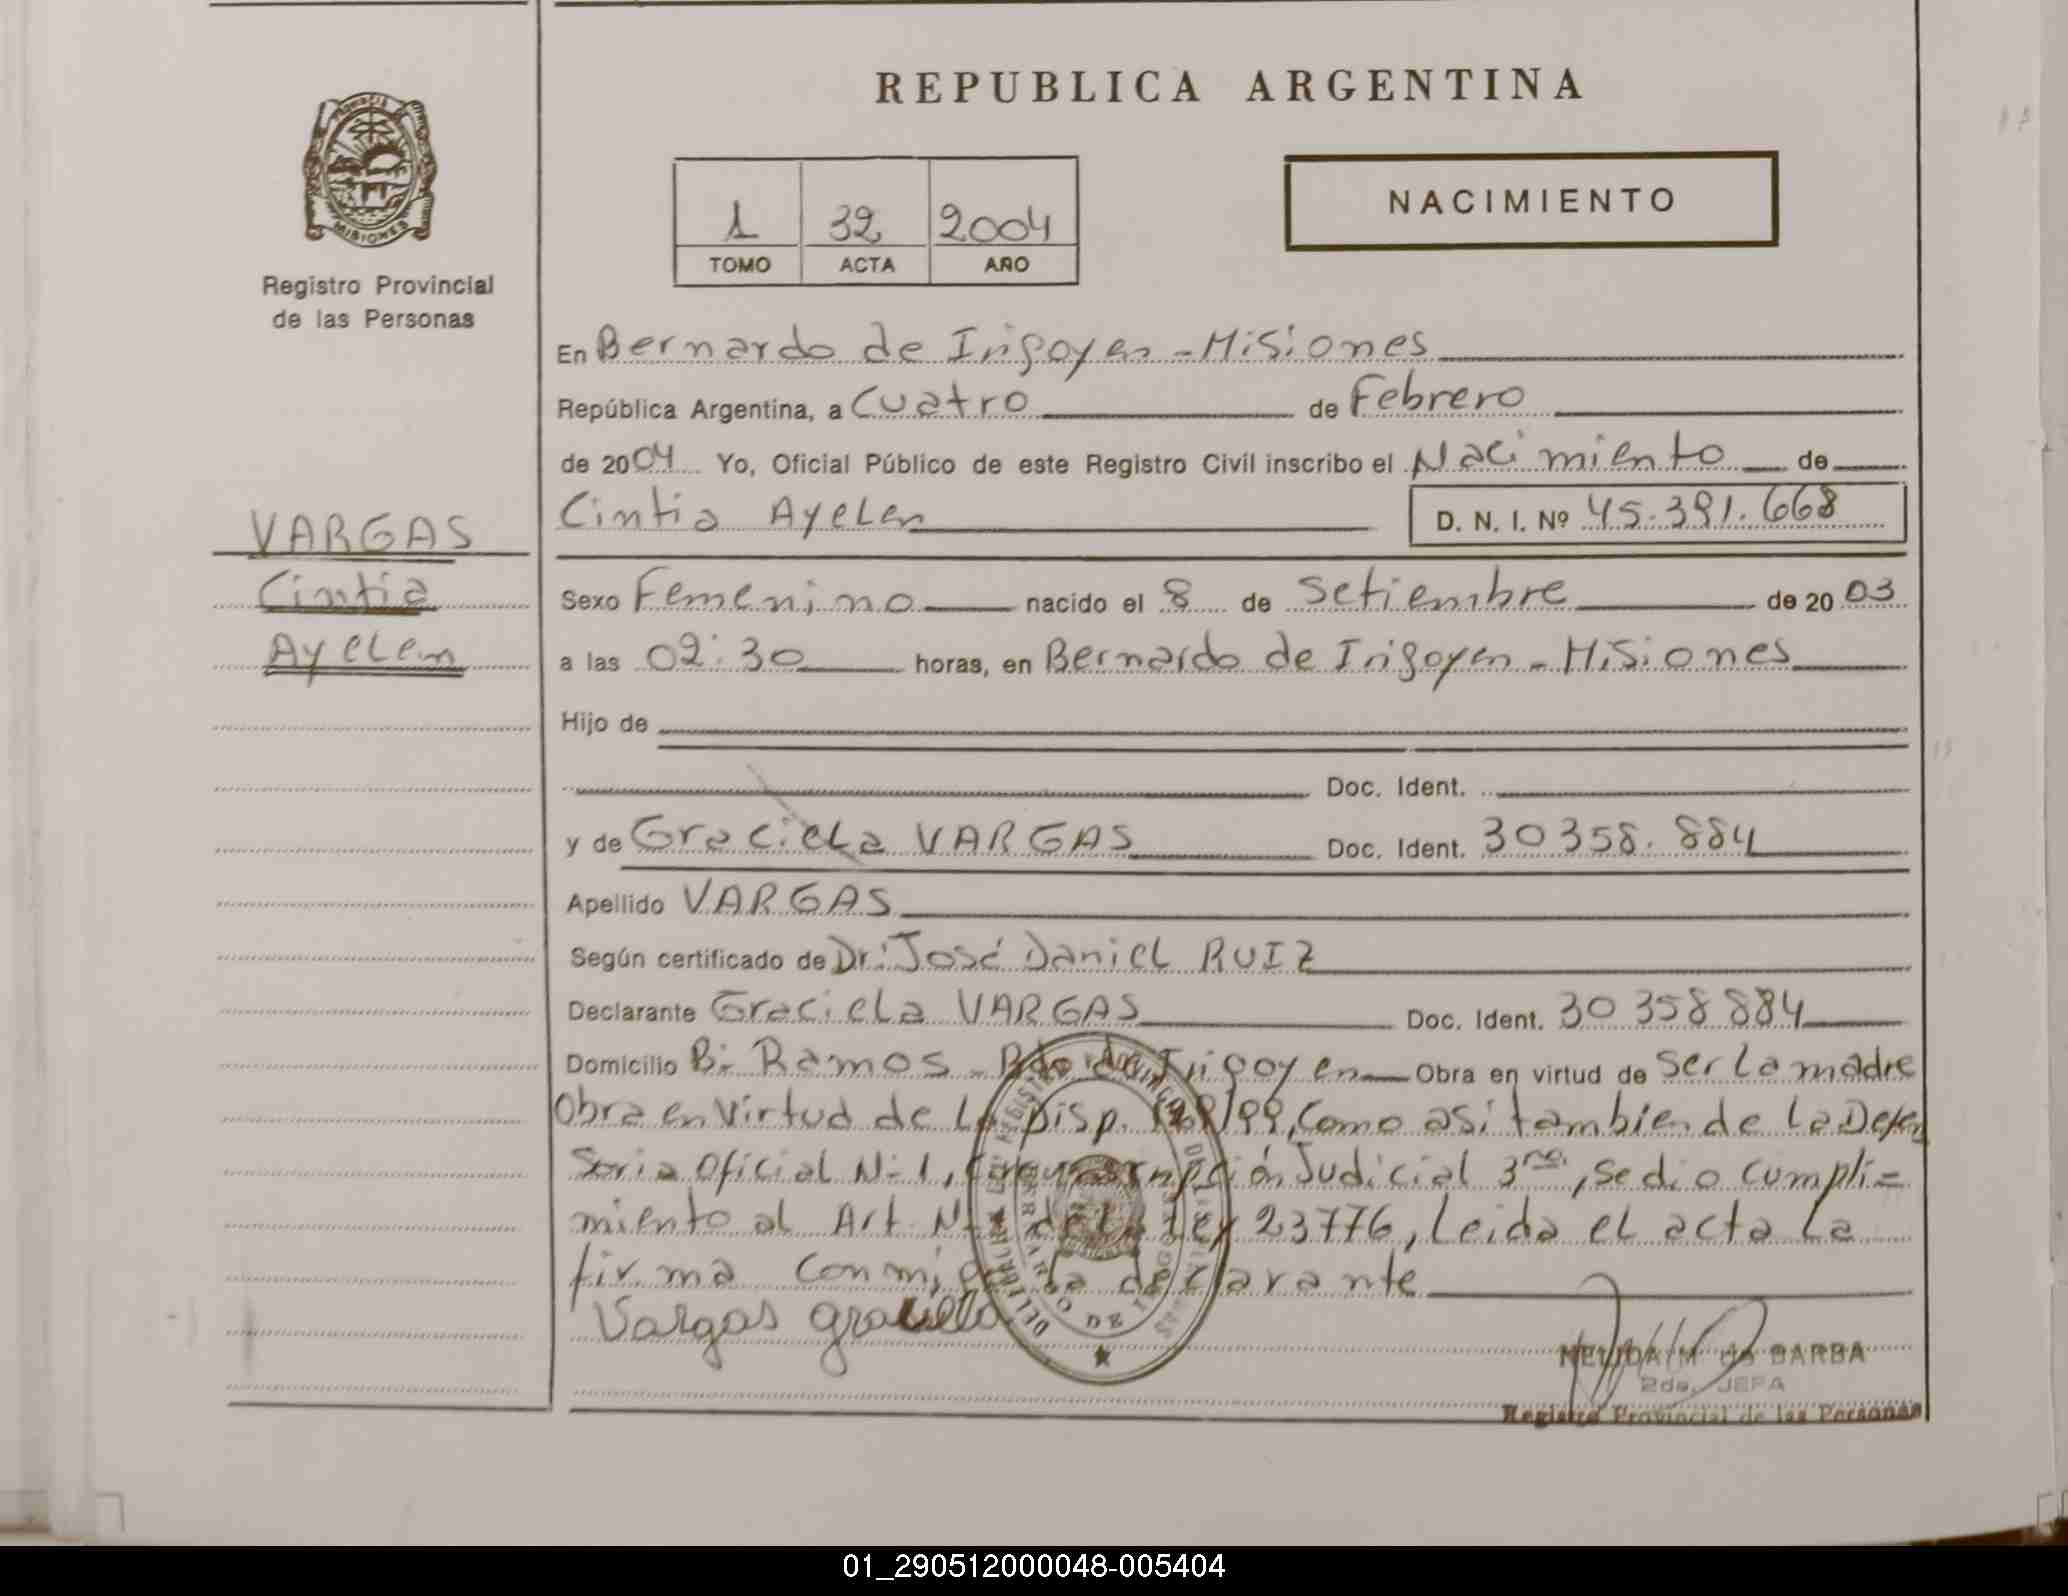 REPUBLICA ARGENTINA
NACIMIENTO
1 32 2004
TOMO ACTA AÑO
MISIONES
Registro Provincial
de las Personas
VARGAS
Cintia
Ayelen
En Bernardo de Irigoyen - Misiones
República Argentina, a Cuatro de Febrero
de 2004 Yo, Oficial Público de este Registro Civil inscribo el Nacimiento de
Cintia Ayelen D. N. I. Nº 45.391.668
Sexo Femenino nacido el 8 de Setiembre de 2003
a las 02:30 horas, en Bernardo de Irigoyen - Misiones
Hijo de
Doc. Ident.
y de Graciela VARGAS Doc. Ident. 30358.884
Apellido VARGAS
Según certificado de Dr: José Daniel RUIZ
Declarante Graciela VARGAS Doc. Ident. 30 358 884
Domicilio B: Ramos - Bdo de Irigoyen Obra en virtud de ser La madre
Obra en Virtud de La Disp. /99, Como asi tambien de La Defen
Soria Oficial N: 1, Circunscripción Judicial 3ra, se dio cumpli=
miento al Art. de la Ley 23776, Leida el acta La
firma conmigo La declarante
Vargas graciela
NELIDA M de BARBA
2da. JEFA
Registro Provincial de las Personas
01_290512000048-005404